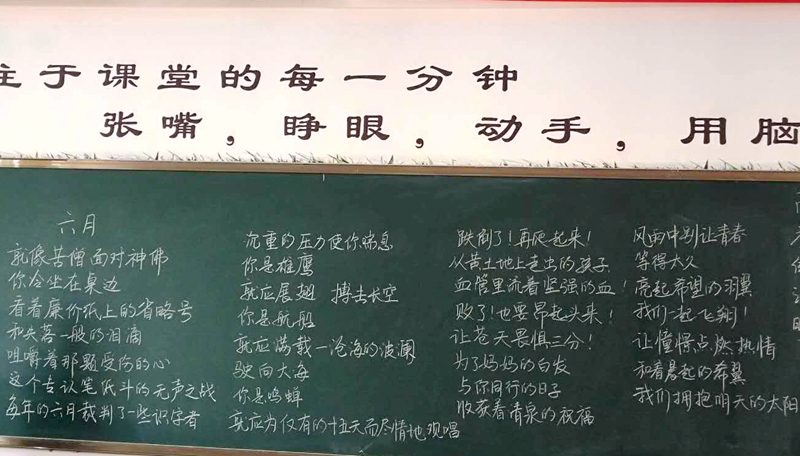 注于课堂的每一分钟
张嘴，睁眼，动手，用脑
六月
就像苦僧面对神佛
你今坐在桌边
看着廉价纸上的省略号
和失落一般的泪滴
咀嚼着那颗受伤的心
这个古认笔纸斗的无声之战
每年的六月裁判了一些识字者
沉重的压力使你喘息
你是雄鹰
就应展翅 搏击长空
你是航船
就应满载一沧海的波澜
驶向大海
你是鸣蝉
就应为仅有的十五天而尽情地观唱
跌倒了！再爬起来！
从黄土地上走出的孩子
血管里流着坚强的血！
败了！也要昂起头来！
让苍天畏惧三分！
为了妈妈的白发
与你同行的日子
收获着清泉的祝福
风雨中别让青春
等得太久
亮起希望的羽翼
我们一起飞翔！
让憧憬点燃热情
和着晨起的希翼
我们拥抱明天的太阳